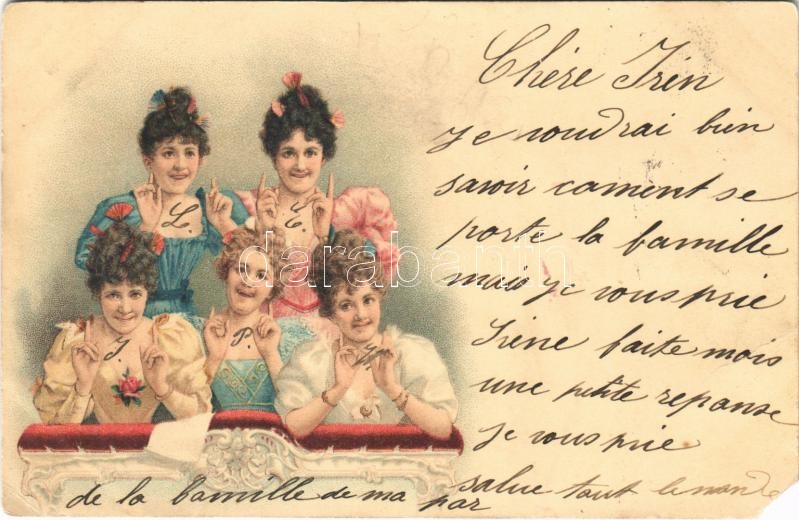 Chére Irén
je voudrai bien
savoir coment se
porte la famille
mais je vous prie
Iréne faite mois
une petite reponse
je vous prie
salue tout le monde
de la famille de ma par
L. E.
I. P.
darabanth